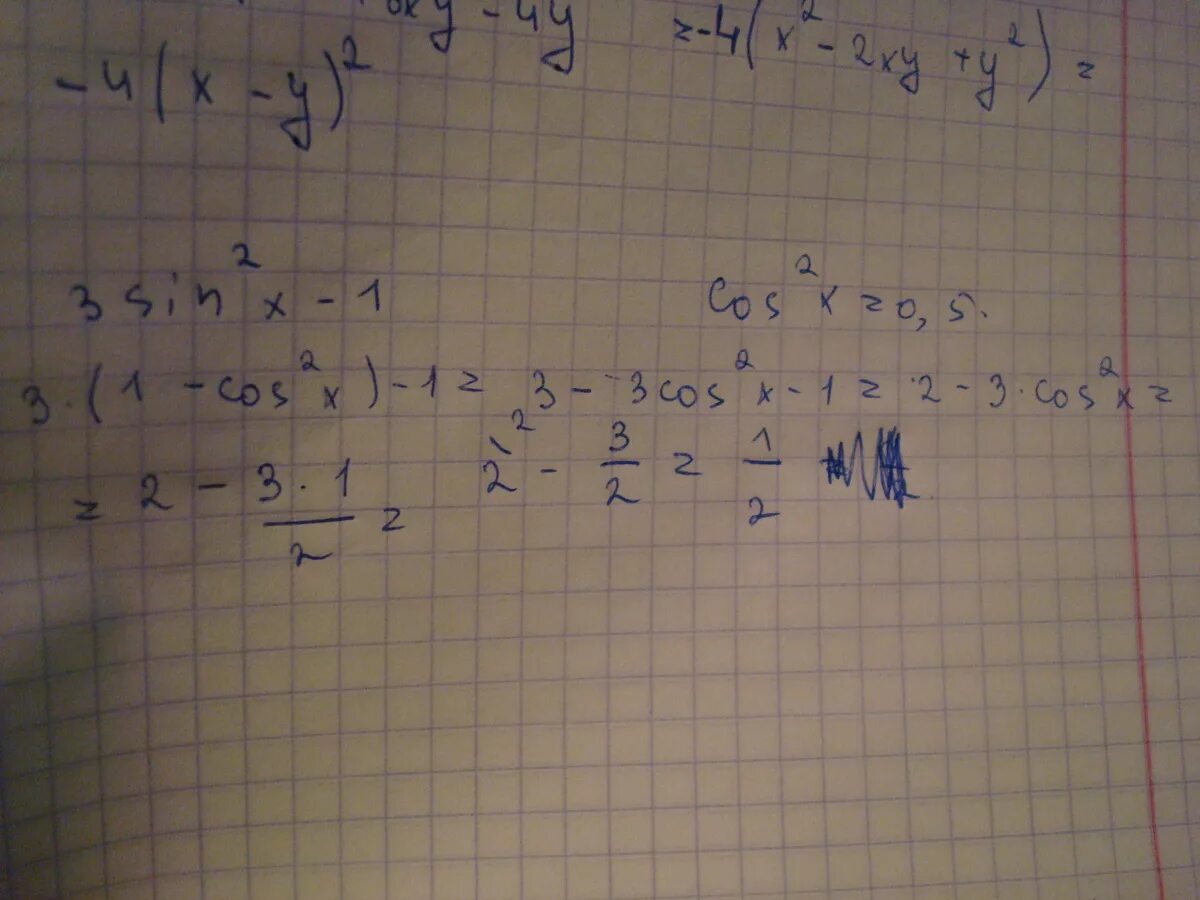 xy - 4y = -4(x² - 2xy + y²) =
-4(x - y)²
3 sin²x - 1 cos²x = 0,5.
3·(1 - cos²x) - 1 = 3 - 3cos²x - 1 = 2 - 3·cos²x =
= 2 - 3·1/2 = 2\² - 3/2 = 1/2